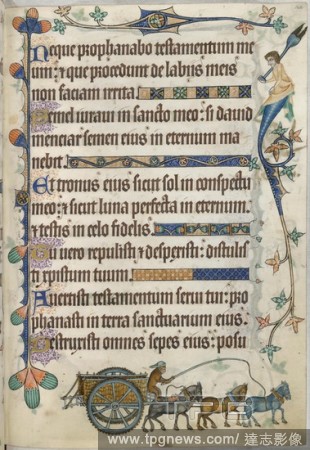 Neque prophanabo testamentum me
um: ⁊ que procedunt de labiis meis
non faciam irrita.
Semel iuravi in sancto meo: si david
menciar semen eius in eternum ma
nebit.
Et tronus eius sicut sol in conspectu
meo: ⁊ sicut luna perfecta in eternum
⁊ testis in celo fidelis.
Tu vero repulisti ⁊ despexisti: distulis
ti xpistum tuum.
Avertisti testamentum servi tui: pro
phanasti in terra sanctuarium eius.
Destruxisti omnes sepes eius: posu
www.tpgnews.com/ 達志影像